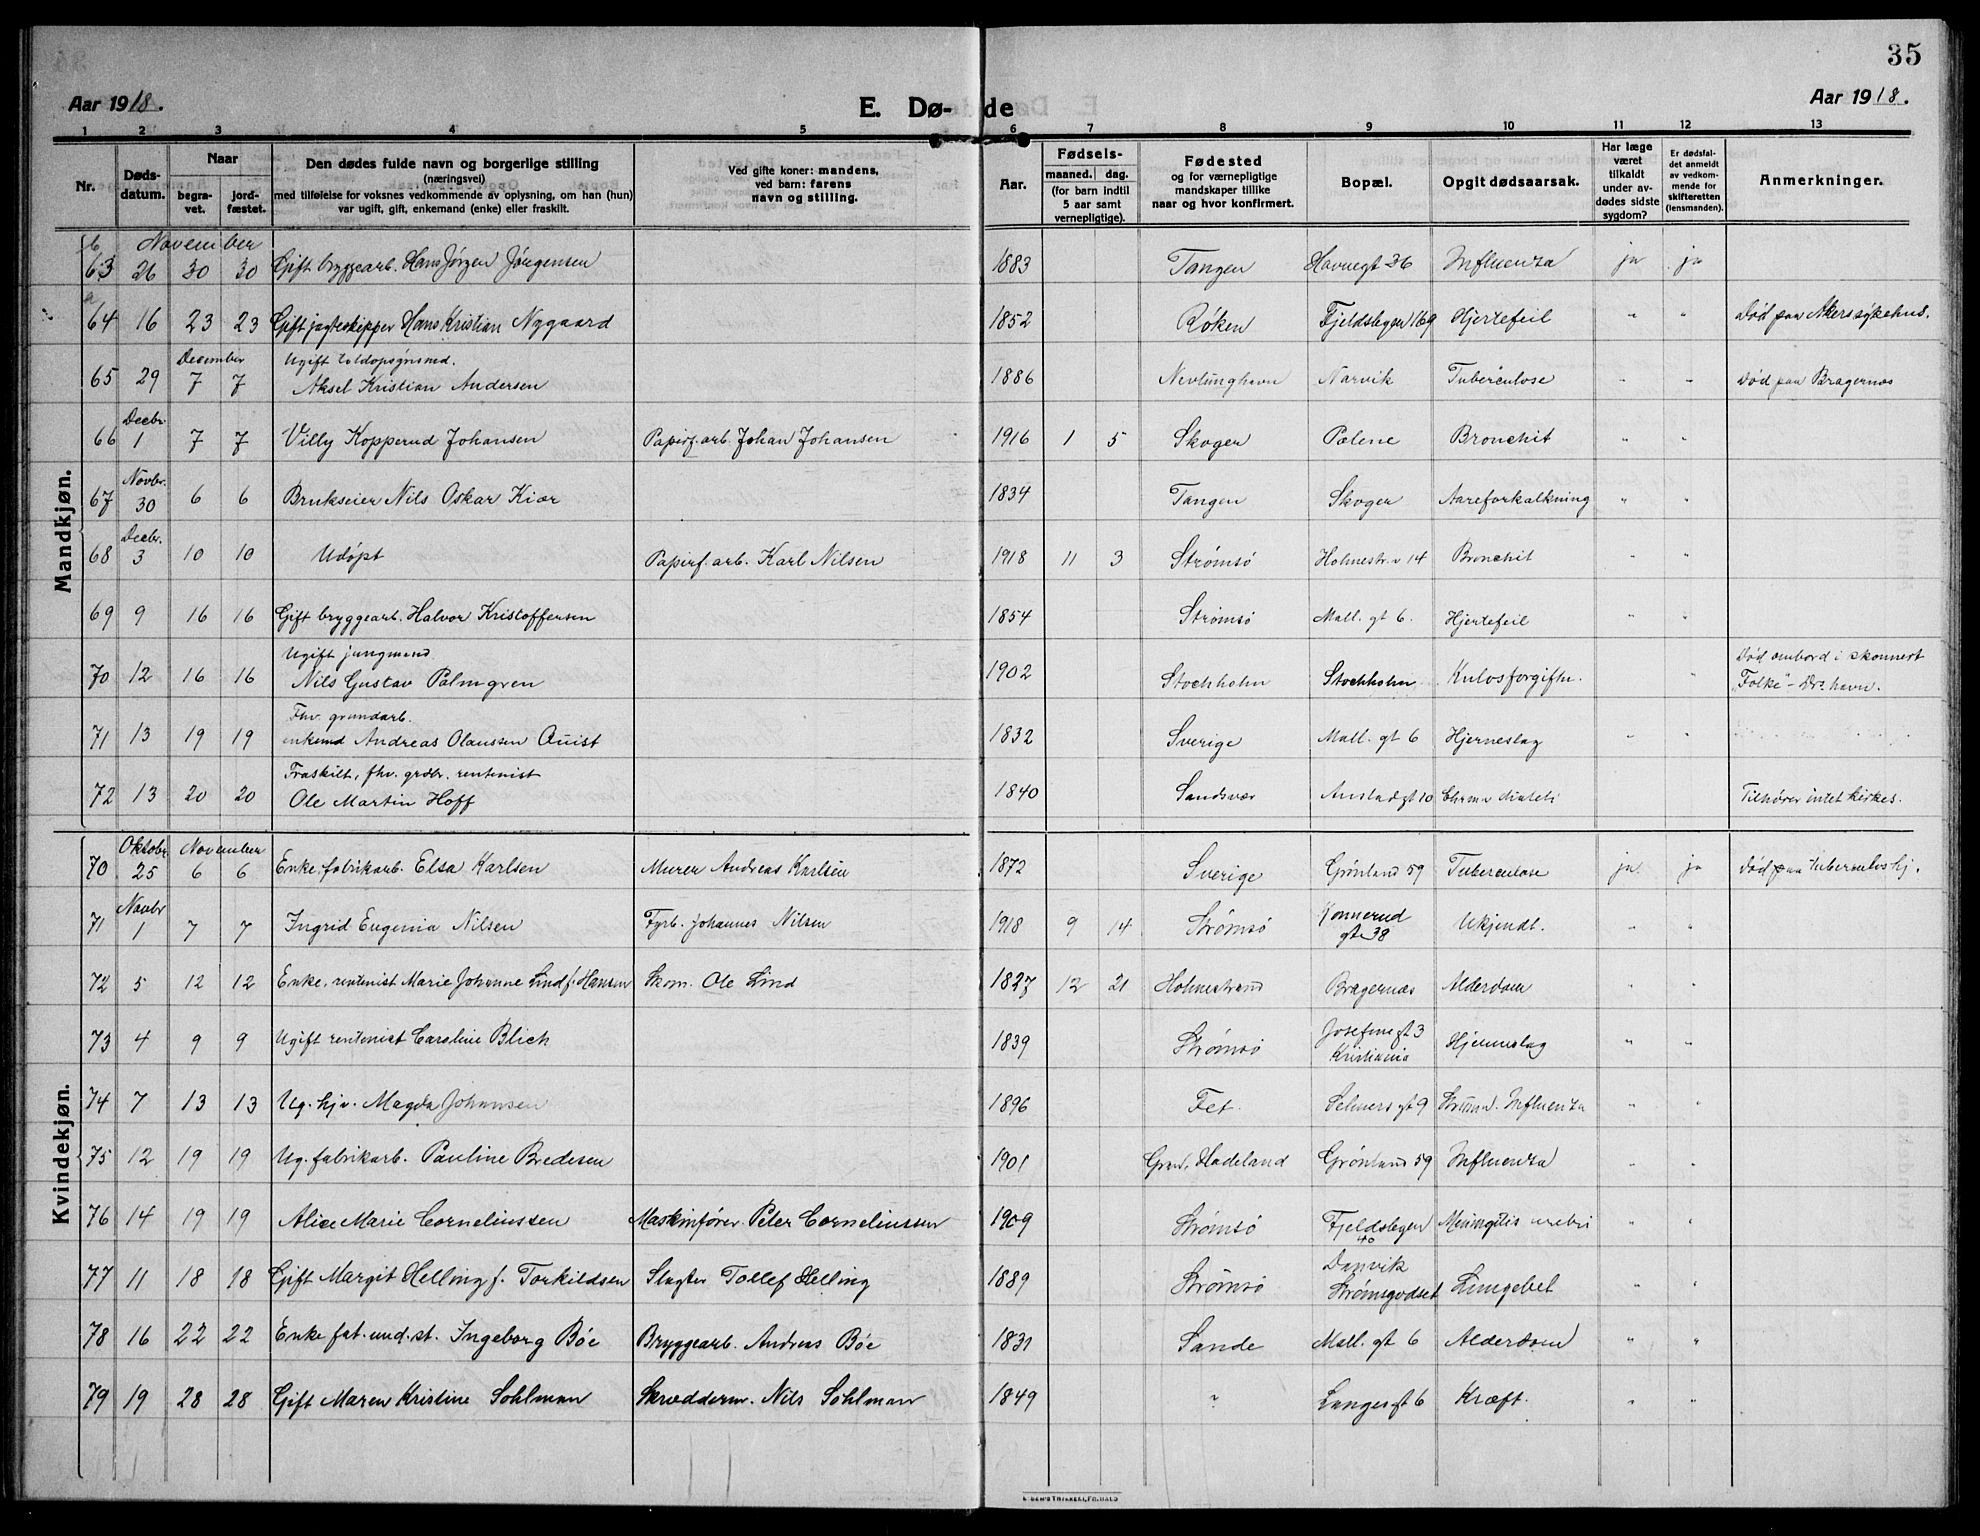 35
Aar 1918.
E. Dø-de
Aar 1918.
1 2 3 4 5 6 7 8 9 10 11 12 13
Nr.
Døds-datum.
Naar
begra-vet.
jord-fæstet.
Den dødes fulde navn og borgerlige stilling
(næringsvei)
med tilføielse for voksnes vedkommende av oplysning, om han (hun)
var ugift, gift, enkemand (enke) eller fraskilt.
Ved gifte koner: mandens,
ved barn: farens
navn og stilling.
Aar.
Fødsels-
maaned. dag.
(for barn indtil
5 aar samt
vernepligtige).
Fødested
og for værnepligtige
mandskaper tillike
naar og hvor konfirmert.
Bopæl.
Opgit dødsaarsak.
Har læge
været
tilkaldt
under av-
dødes sidste
sygdom?
Er dødsfal-
det anmeldt
av vedkom-
mende for
skifteretten
(lensmanden).
Anmerkninger.
Mandkjøn.
b November
63 26 30 30 Gift bryggearb. Hans Jørgen Jørgensen 1883 Tangen Havnegt 36 Influenza ja ja
a
64 16 23 23 Gift jagteskipper Hans Kristian Nygaard 1852 Røken Fjeldsbyen 169 Hjertefeil " " Død paa Akers sykehus.
December Ugift toldopsynsmd.
65 29 7 7 Aksel Kristian Andersen 1886 Nevlunghavn Narvik Tuberculose " " Død paa Bragernæs
Decbr.
66 1 7 7 Villy Kopperud Johansen Papirf.arb. Johan Johansen 1916 1 5 Skoger Pælene Bronchit " "
Novbr.
67 30 6 6 Brukseier Nils Oskar Kiær 1834 Tangen Skoger Aareforkalkning " "
Decbr.
68 3 10 10 Udøpt Papirf.arb. Karl Nilsen 1918 11 3 Strømsø Holmestr.v 14 Bronchit " "
69 9 16 16 Gift bryggearb. Halvor Kristoffersen 1854 Strømsø Mall. gt 6. Hjertefeil " "
Ugift jungmand Død ombord i skonnert
70 12 16 16 Nils Gustav Palmgren 1902 Stockholm Stockholm Kulosforgiftn. " "Folke" - Dr. havn.
Fhv. grundarb.
71 13 19 19 enkemd Andreas Olaussen Quist 1832 Sverige Mall. gt 6 Hjerneslag " "
Fraskilt, fhv. grdbr. rentenist
72 13 20 20 Ole Martin Hoff 1840 Sandsvær Austadgt 10 Chron. diabeti " Tilhører intet kirkes.
Kvindekjøn.
Oktober November
70 25 6 6 Enke, fabrikarb. Elsa Karlsen Murer Andreas Karlsen 1872 Sverige Grønland 59 Tuberculose ja ja Død paa Tuberculoshj.
Novbr
71 1 7 7 Ingrid Eugenia Nilsen Fyrb. Johannes Nilsen 1918 9 14 Strømsø Konnerud gte 38 Ukjendt. " "
72 5 12 12 Enke, rentenist Marie Johanne Lind f. Hansen Skom. Ole Lind 1827 12 21 Holmestrand Bragernæs Alderdom " "
73 4 9 9 Ugift rentenist Caroline Blich 1839 Strømsø Josefinegt 3 Kristiania Hjerneslag " "
74 7 13 13 Ug. hj.v. Magda Johansen 1896 Fet. Selmersgt 9 Influenza " "
75 12 19 19 Ug. fabrikarb. Pauline Bredesen 1901 Gran, Hadeland Grønland 59 Influenza " "
76 14 19 19 Alice Marie Corneliussen Maskinfører Peter Corneliussen 1909 Strømsø Fjeldsbyen 40 Meningitis " "
77 11 18 18 Gift Margit Helling f. Torkildsen Slagter Tollef Helling 1889 Strømsø Danvik Strømsgodset Lungebet " "
78 16 22 22 Enke fat.und.st. Ingeborg Bøe Bryggearb. Andreas Bøe 1831 Sande Mall. gt 6 Alderdom " "
79 19 28 28 Gift Maren Kristine Sohlman Skrædderm. Nils Sohlman 1849 " Langesgt 6 Kræft. " "